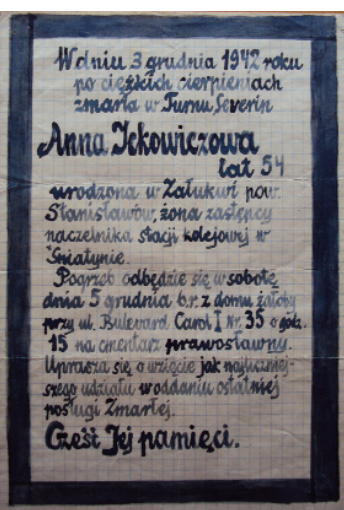 W dniu 3 grudnia 1942 roku
po ciężkich cierpieniach
zmarła w Turnu Severin
Anna Ickowiczowa
lat 54
urodzona w Załukwi pow.
Stanisławów, żona zastępcy
naczelnika stacji kolejowej w
Śniatynie.
Pogrzeb odbędzie się w sobotę
dnia 5 grudnia b.r. z domu żałoby
przy ul. Bulevard Carol I Nr. 35 o godz.
15 na cmentarz prawosławny.
Uprasza się o wzięcie jak najliczniej-
szego udziału w oddaniu ostatniej
posługi Zmarłej.
Cześć Jej pamięci.